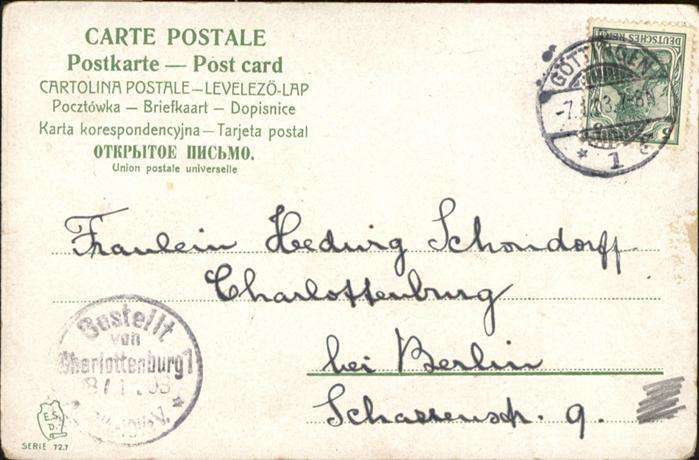 CARTE POSTALE
Postkarte — Post card
CARTOLINA POSTALE — LEVELEZŐ-LAP
Pocztówka — Briefkaart — Dopisnice
Karta korespondencyjna — Tarjeta postal
ОТКРЫТОЕ ПИСЬМО.
Union postale universelle
DEUTSCHES REICH
5
GÖTTINGEN
1
Fräulein Hedwig Schondorff
Charlottenburg
bei Berlin
9.
Bestellt
von
Charlottenburg 1
E.S.
D.
SERIE 72.1